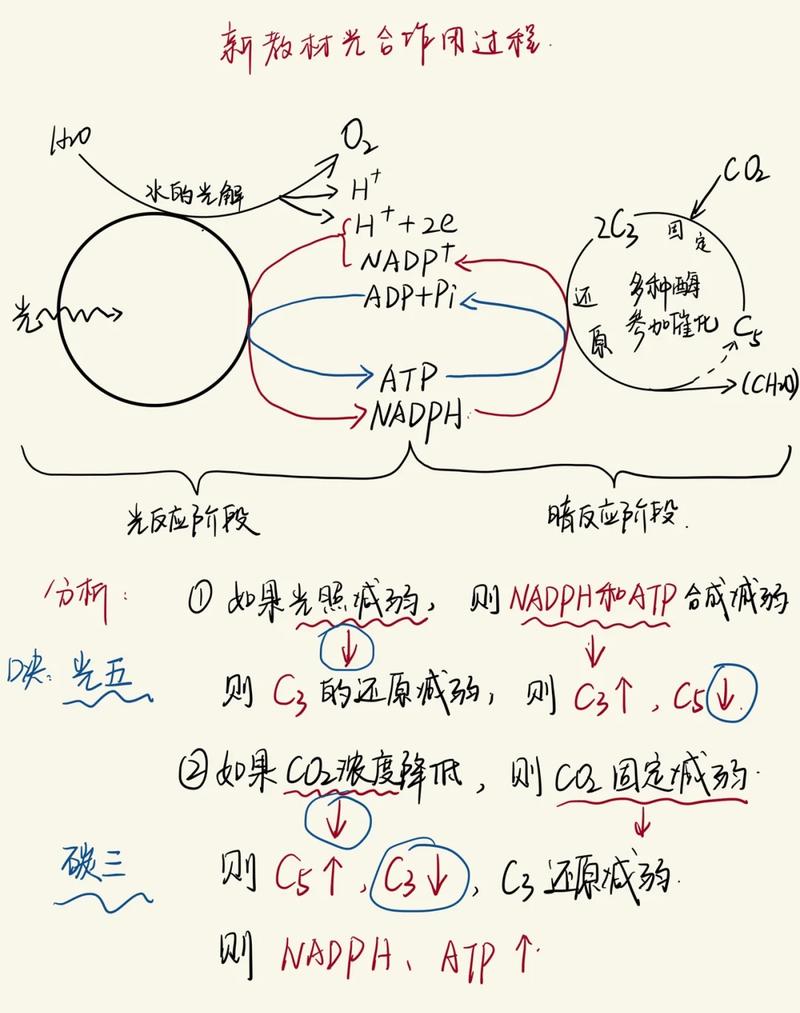 新教材光合作用过程.
H2O
水的光解
O2
H+
H+ + 2e
NADP+
ADP+Pi
ATP
NADPH
光
CO2
2C3 固定
还原
多种酶
参加催化
C5
(CH2O)
光反应阶段
暗反应阶段.
分析: ①如果光照减弱, 则NADPH和ATP合成减弱
↓ ↓
口诀: 光五 则 C3 的还原减弱, 则 C3↑, C5↓.
②如果CO2浓度降低, 则CO2固定减弱.
↓ ↓
碳三 则 C5↑, C3↓, C3还原减弱.
则 NADPH、ATP↑.